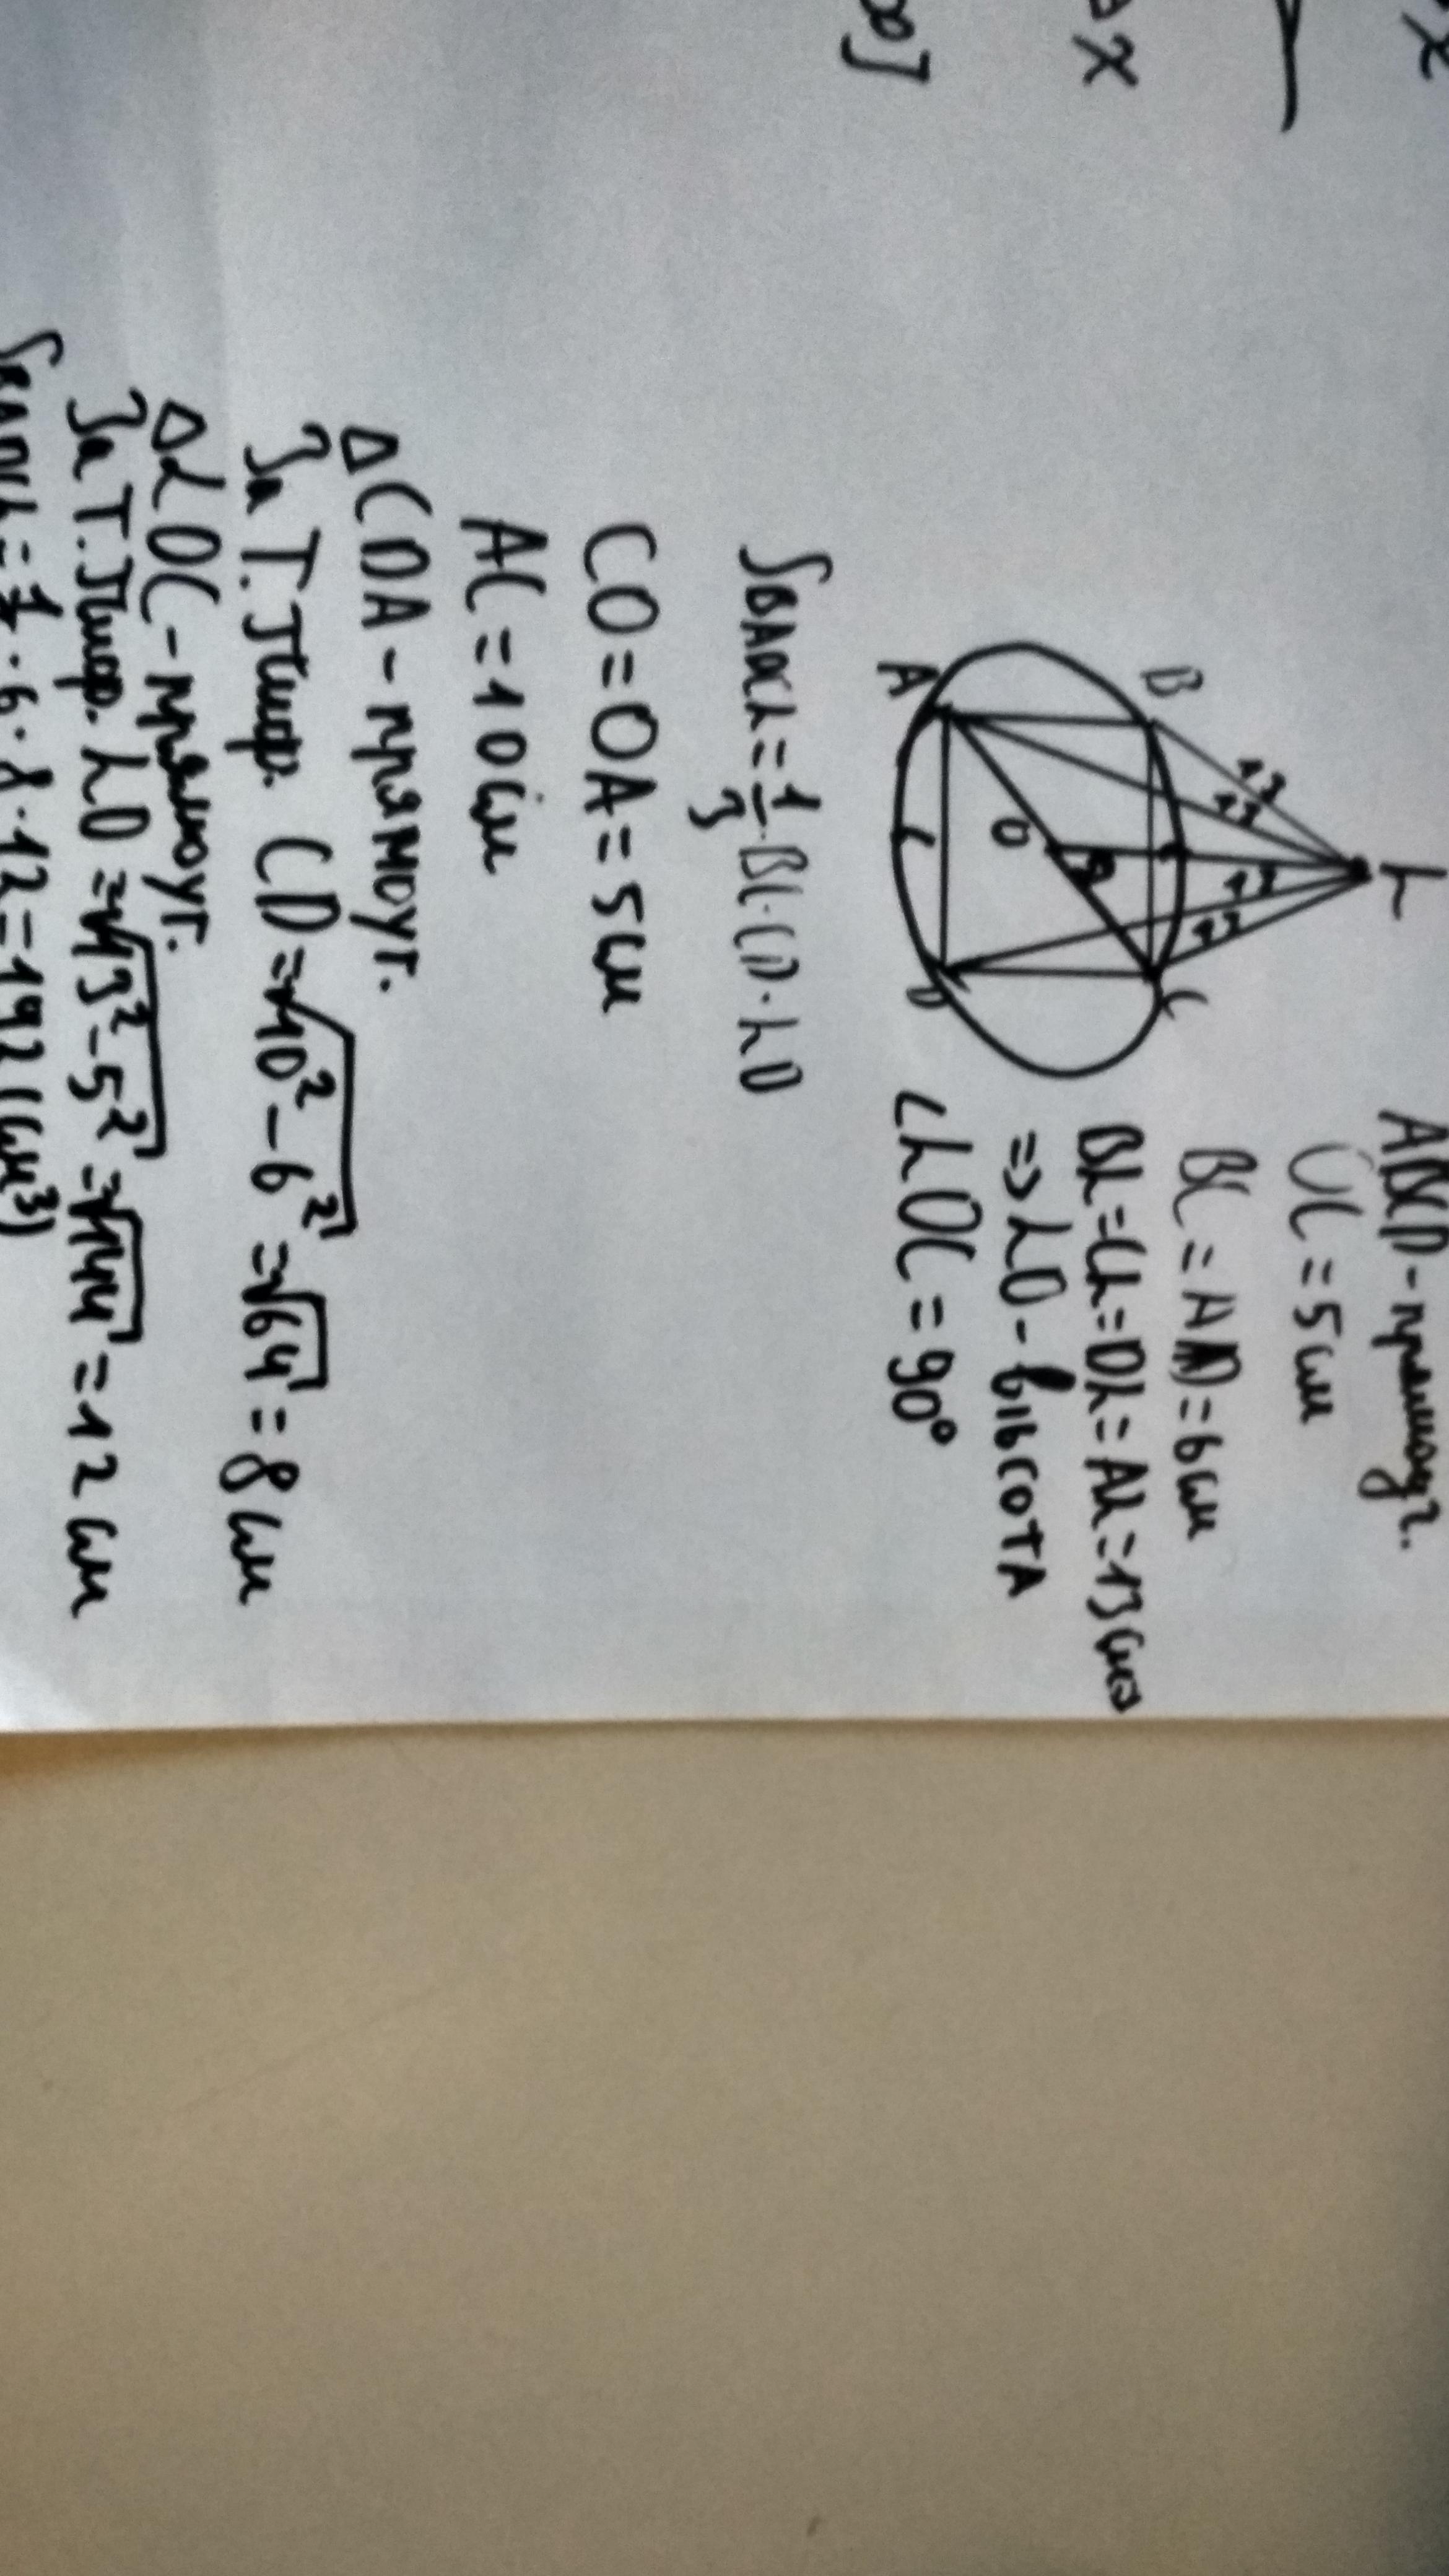 x
Δx
∞]
ABCD - прямоуг.
OC = 5 см
BC = AD = 6 см
BL = CL = DL = AL = 13 см
=> LO - висота
∠LOC = 90°
L
B
C
A
D
O
13
13
13
13
SBADCL = 1/3 · BC · CD · LO
CO = OA = 5 см
AC = 10 см
ΔCDA - прямоуг.
За Т. Піф. CD = √10² - 6² = √64 = 8 см
ΔLOC - прямоуг.
За Т. Піф. LO = √13² - 5² = √144 = 12 см
SBADCL = 1/3 · 6 · 8 · 12 = 192 (см³)